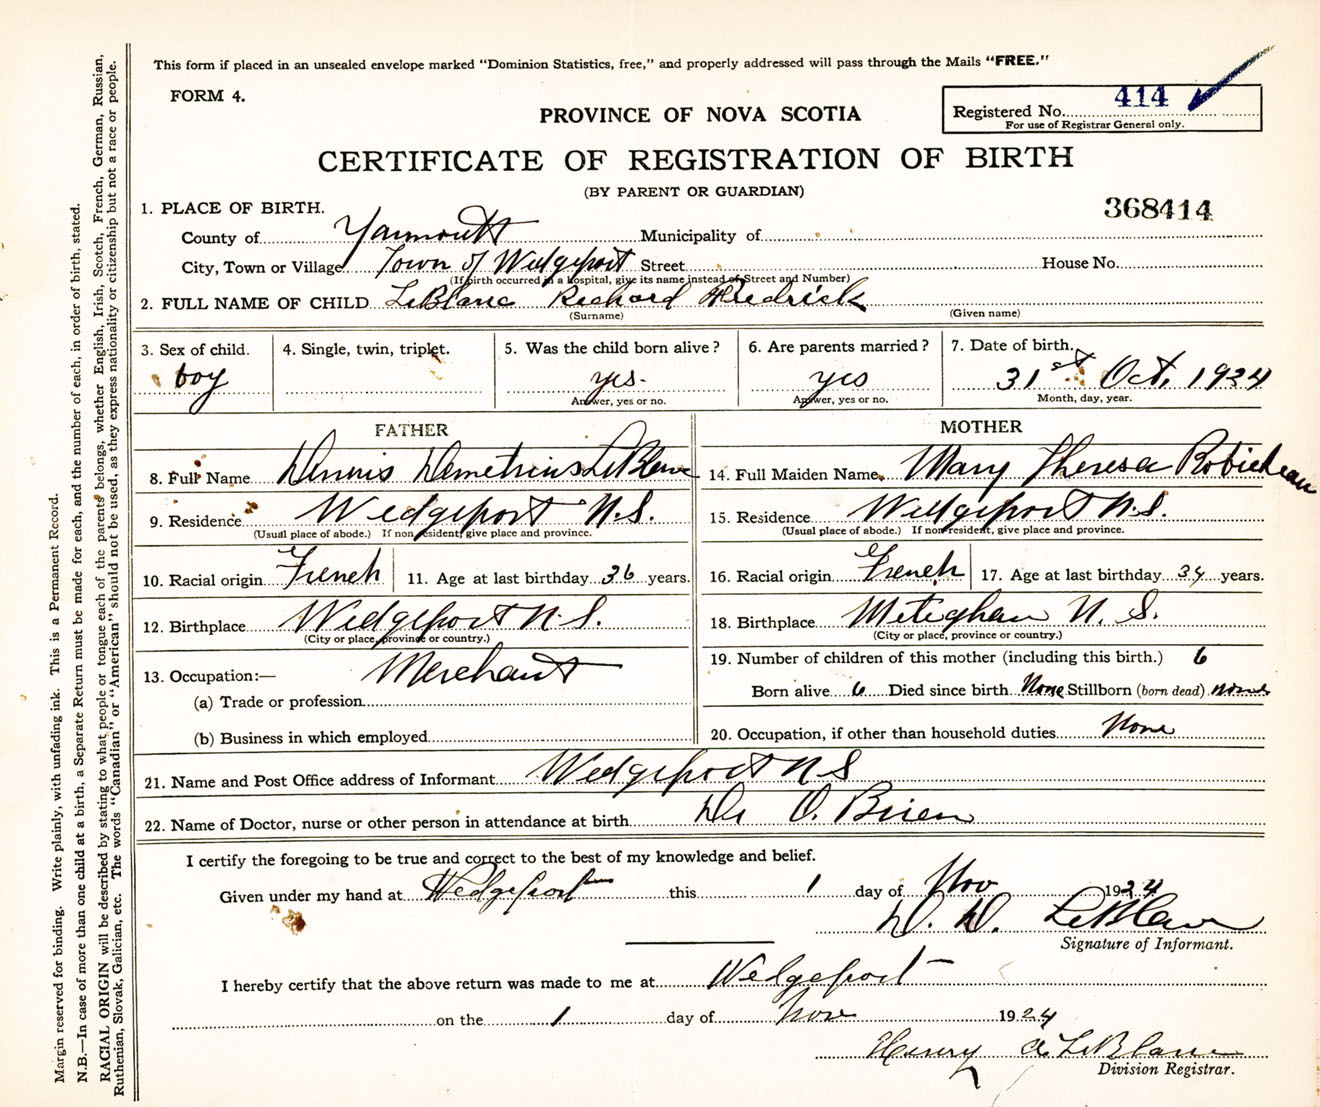 This form if placed in an unsealed envelope marked "Dominion Statistics, free," and properly addressed will pass through the Mails "FREE."
FORM 4.
PROVINCE OF NOVA SCOTIA
Registered No. 414
For use of Registrar General only.
CERTIFICATE OF REGISTRATION OF BIRTH
(BY PARENT OR GUARDIAN)
368414
1. PLACE OF BIRTH.
County of Yarmouth Municipality of
City, Town or Village Town of Wedgeport Street House No.
(If birth occurred in a hospital, give its name instead of Street and Number)
2. FULL NAME OF CHILD LeBlanc Richard Fredrick
(Surname) (Given name)
3. Sex of child. 4. Single, twin, triplet. 5. Was the child born alive? 6. Are parents married? 7. Date of birth.
boy yes. yes 31st Oct. 1924
Answer, yes or no. Answer, yes or no. Month, day, year.
FATHER MOTHER
8. Full Name Dennis Demetrius LeBlanc 14. Full Maiden Name Mary Theresa Robicheau
9. Residence Wedgeport N.S. 15. Residence Wedgeport N.S.
(Usual place of abode.) If non resident, give place and province. (Usual place of abode.) If non-resident, give place and province.
10. Racial origin French 11. Age at last birthday 36 years. 16. Racial origin French 17. Age at last birthday 34 years.
12. Birthplace Wedgeport N.S. 18. Birthplace Meteghan N.S.
(City or place, province or country.) (City or place, province or country.)
13. Occupation:— Merchant 19. Number of children of this mother (including this birth.) 6
(a) Trade or profession Born alive 6 Died since birth None Stillborn (born dead) none
(b) Business in which employed 20. Occupation, if other than household duties None
21. Name and Post Office address of Informant Wedgeport N S
22. Name of Doctor, nurse or other person in attendance at birth Dr O. Brien
I certify the foregoing to be true and correct to the best of my knowledge and belief.
Given under my hand at Wedgeport this 1 day of Nov 1924
D. D. LeBlanc
Signature of Informant.
I hereby certify that the above return was made to me at Wedgeport
on the 1 day of Nov 1924
Henry A. LeBlanc
Division Registrar.
Margin reserved for binding. Write plainly, with unfading ink. This is a Permanent Record.
N.B.—In case of more than one child at a birth, a Separate Return must be made for each, and the number of each, in order of birth, stated.
RACIAL ORIGIN will be described by stating to what people or tongue each of the parents belongs, whether English, Irish, Scotch, French, German, Russian,
Ruthenian, Slovak, Galician, etc. The words "Canadian" or "American" should not be used, as they express nationality or citizenship but not a race or people.